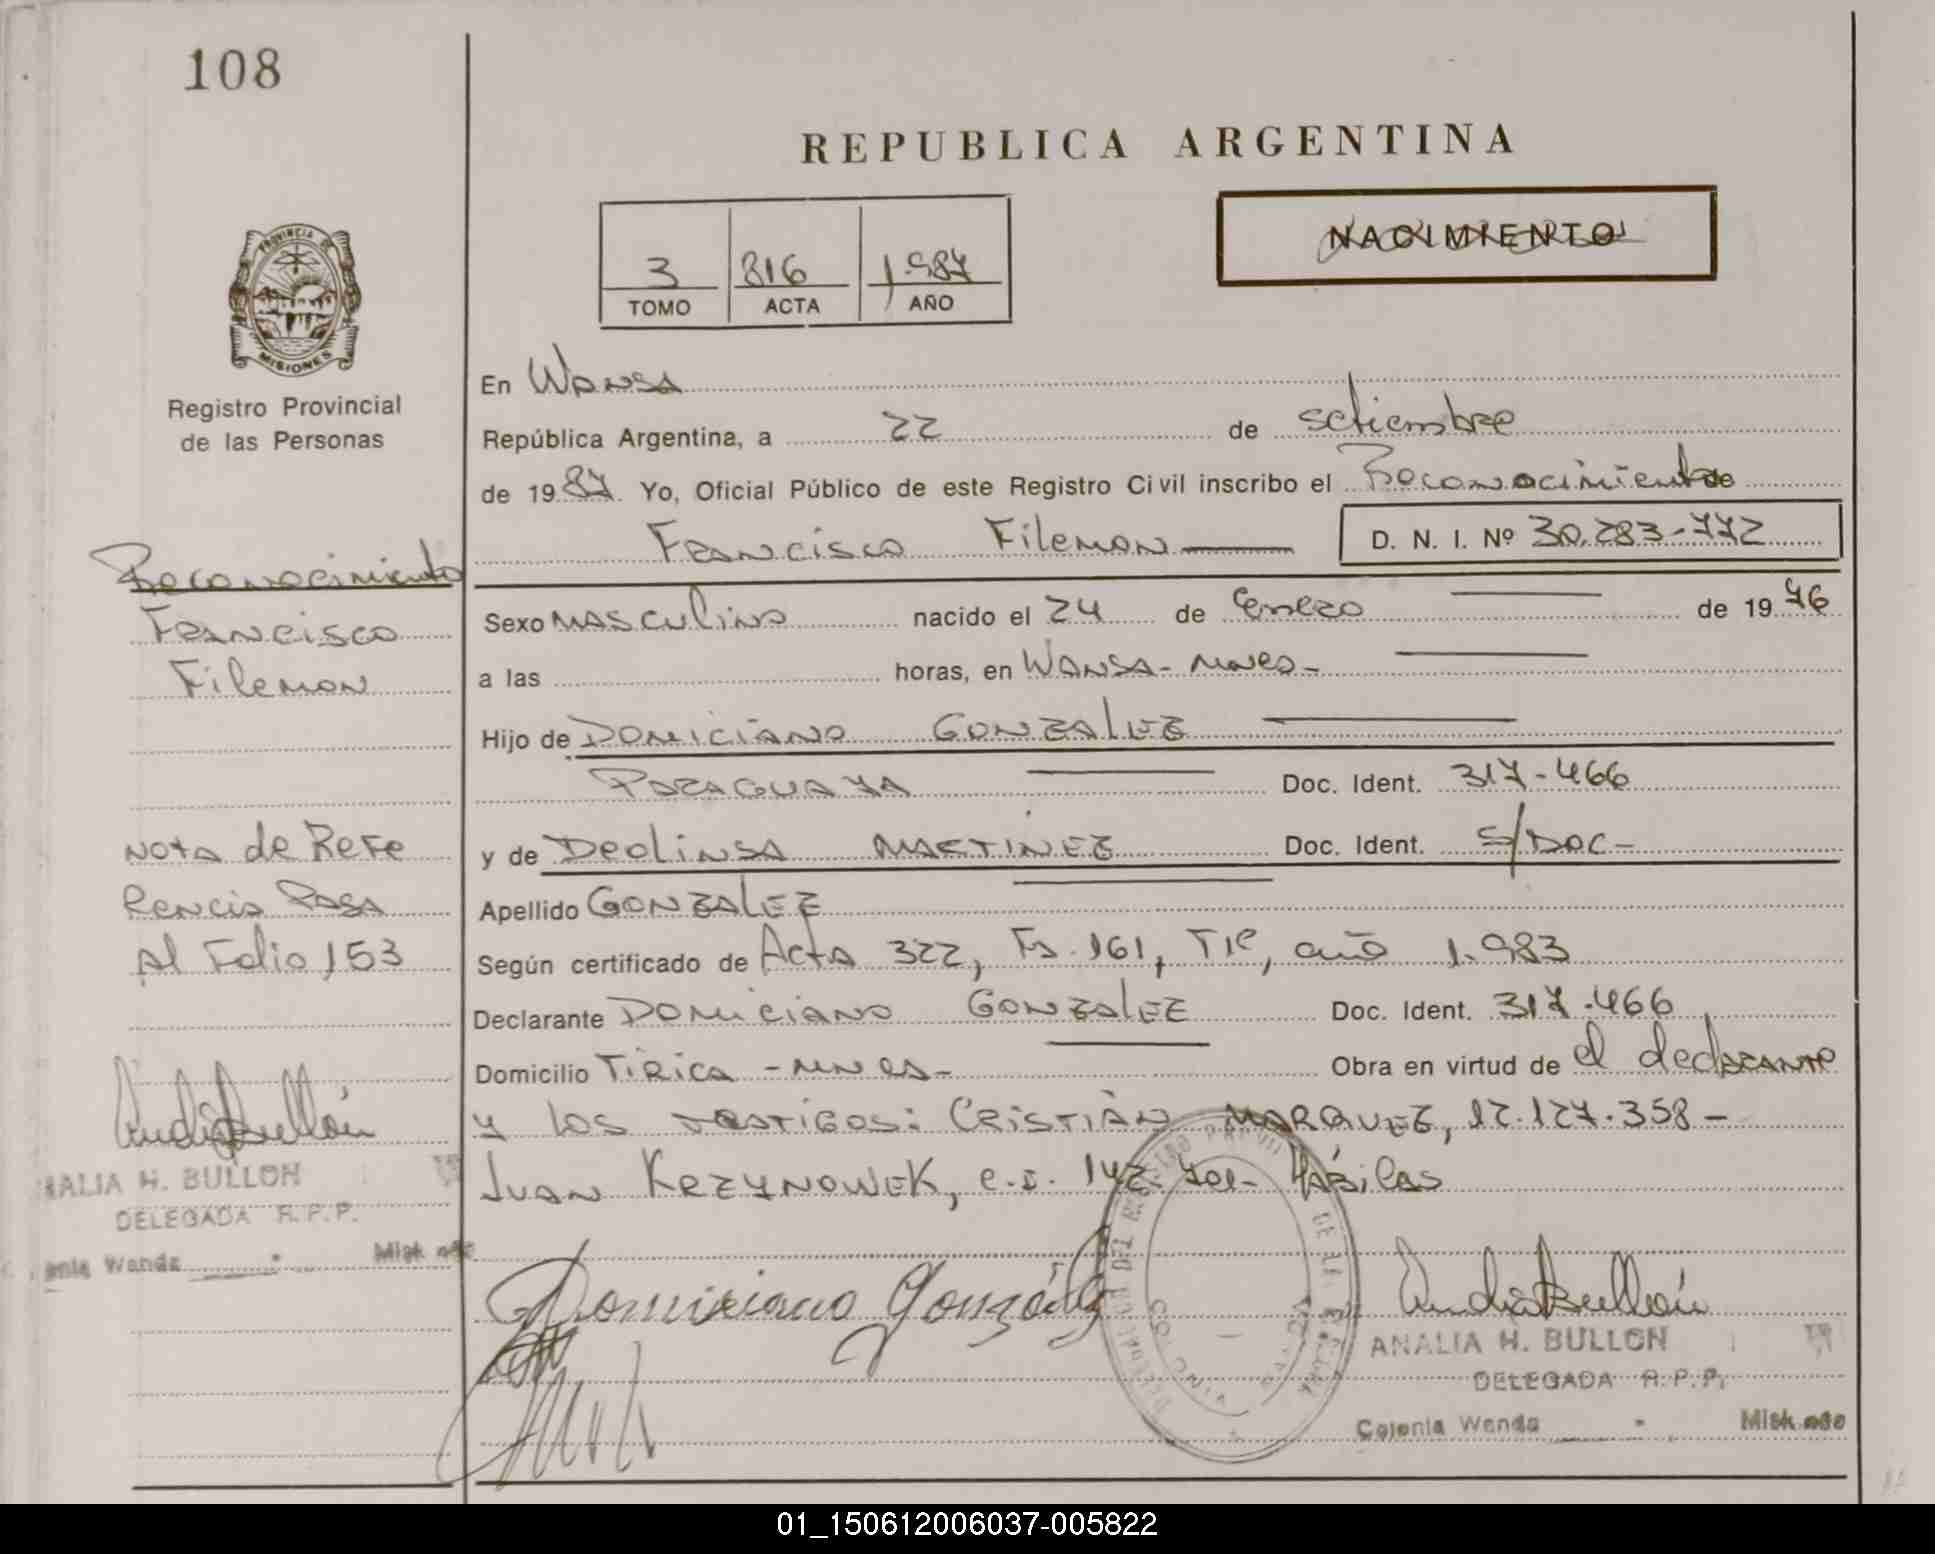 108
REPUBLICA ARGENTINA
PROVINCIA DE
MISIONES
Registro Provincial
de las Personas
3 816 1.987
TOMO ACTA AÑO
NACIMIENTO
En Wanda
República Argentina, a 22 de setiembre
de 1987. Yo, Oficial Público de este Registro Civil inscribo el Reconocimiento de
Francisco Filemon D. N. I. Nº 30.283-772
Sexo MASCULINO nacido el 24 de Enero de 1976
a las horas, en WANDA- Mnes-
Hijo de DOMICIANO GONZALEZ
PARAGUAYA Doc. Ident. 317-466
y de Deolinda MARTINEZ Doc. Ident. S/Doc-
Apellido GONZALEZ
Según certificado de Acta 322, Fs. 161, Tº, año 1.983
Declarante DOMICIANO GONZALEZ Doc. Ident. 317.466
Domicilio Tirica - Mnes- Obra en virtud de el declarante
y los testigos: Cristián MARQUEZ, 12.127.358-
Juan KRZYNOWEK, c.i. 142.701- Hábiles
Domiciano González
ANALIA H. BULLON
DELEGADA R.P.P.
Colonia Wanda Misiones
Reconocimiento
Francisco
Filemon
Nota de Refe
rencia Pasa
Al Folio 153
ANALIA H. BULLON
DELEGADA R.P.P.
Wanda
COLONIA WANDA
01_150612006037-005822